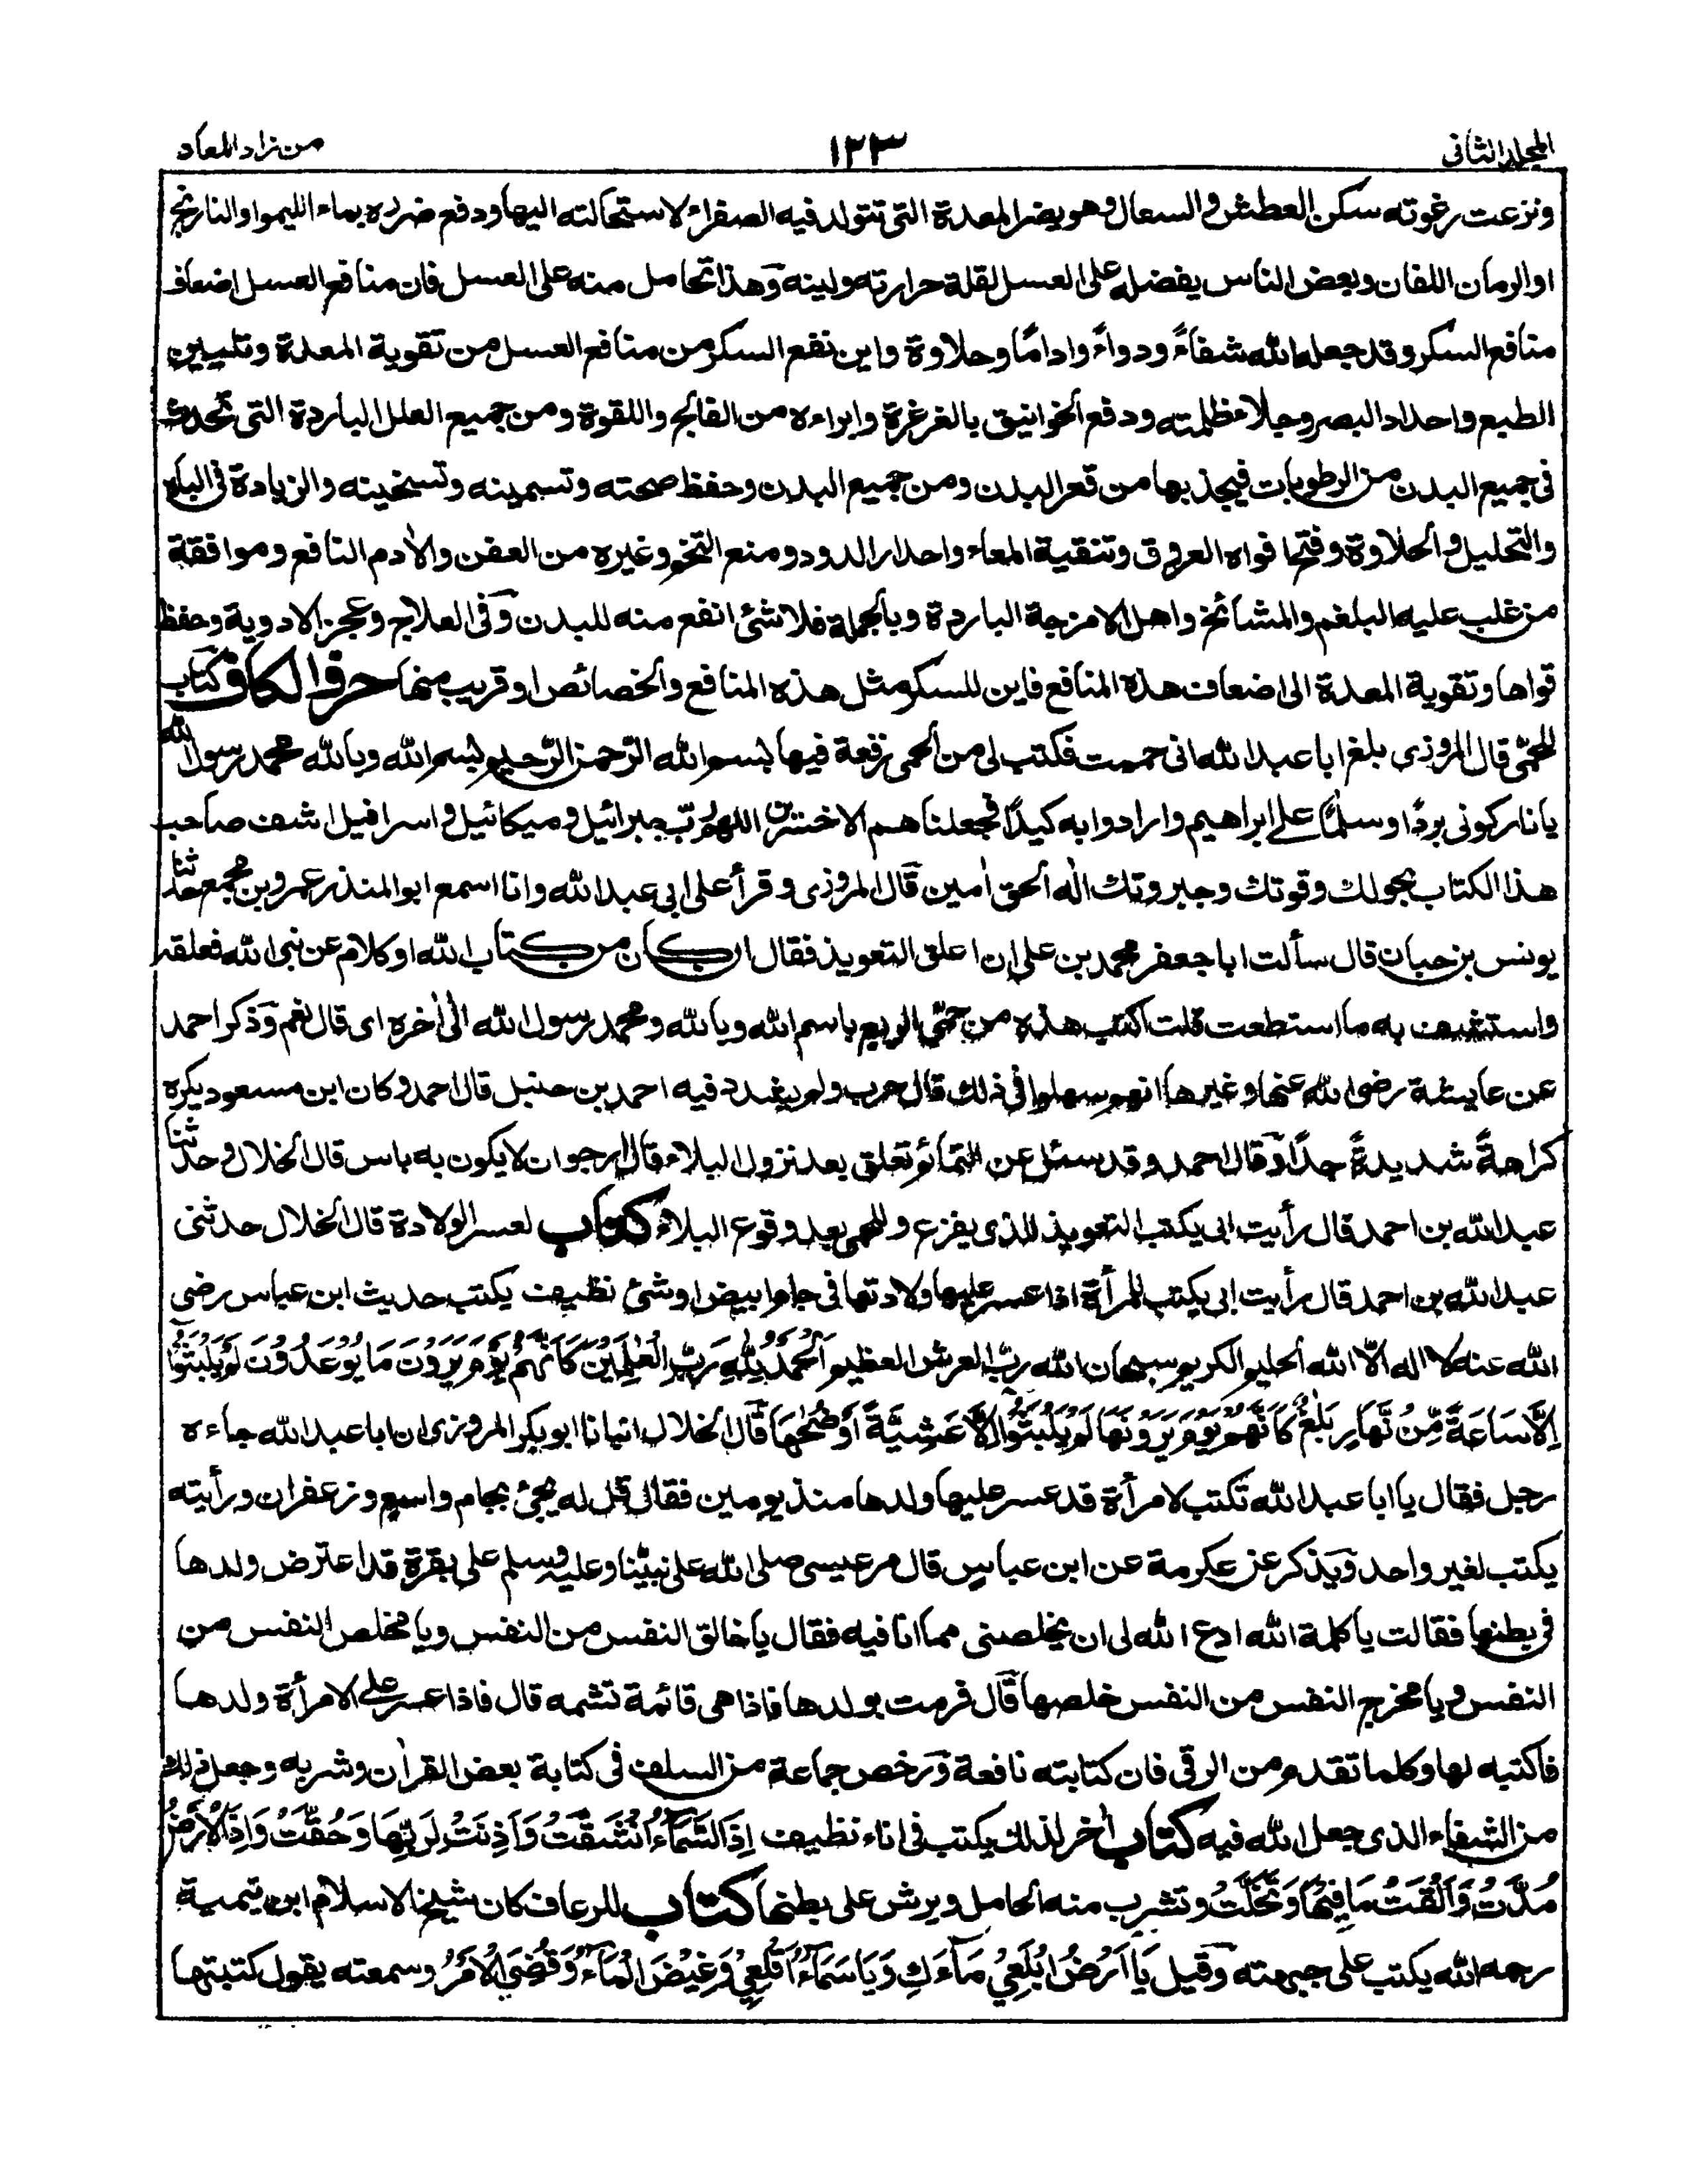 المجلد الثانى
١٢٣
من زاد المعاد
ونزعت رغوته سكن العطش والسعال وهو يضر المعدة التى تتولد فيه الصفراء لاستحالته اليها ودفع ضرره بماء الليموا والنارنج
او الرمان اللفان وبعض الناس يفضله على العسل لقلة حرارته ولينه وهذا تحامل منه على العسل فان منافع العسل اضعاف
منافع السكر وقد جعله الله شفاءً ودواءً واداماً وحلاوة واين نفع السكر من منافع العسل من تقوية المعدة وتليين
الطبع واحداد البصر وجلاء ظلمته ودفع الخوانيق بالغرغرة وابراءه من الفالج واللقوة ومن جميع العلل الباردة التى تحدث
فى جميع البدن من الرطوبات فيجذبها من قعر البدن ومن جميع البدن وحفظ صحته وتسمينه وتسخينه والزيادة فى الباه
والتحليل والحلاوة وفتح افواه العروق وتنقية المعاء واحدار الدود ومنع التخم وغيره من العفن والأدم النافع وموافقة
من غلب عليه البلغم والمشائخ واهل الامزجة الباردة وبالجملة فلا شئ انفع منه للبدن وفى العلاج وعجن الادوية وحفظ
قواها وتقوية المعدة الى اضعاف هذه المنافع فاين للسكر مثل هذه المنافع والخصائص او قريب منها حرف الكاف كتاب
للحمّى قال المروزى بلغ ابا عبد الله انى حممت فكتب لى من الحمى رقعة فيها بسم الله الرحمن الرحيم بسم الله وبالله محمد رسول الله
يا نار كونى بردًا وسلمًا على ابراهيم وارادوا به كيدًا فجعلناهم الاخسرين اللهم ربّ جبرائيل وميكائيل واسرافيل اشف صاحب
هذا الكتاب بحولك وقوتك وجبروتك اله الحق أمين قال المروزى وقرأ على ابى عبد الله وانا اسمع ابو المنذر عمرو بن مجمع حدثنا
يونس بن حبان قال سألت ابا جعفر محمد بن على ان اعلق التعويذ فقال ان كان من كتاب الله او كلام عن نبى الله فعلقه
واستشف به ما استطعت قلت اكتب هذه من حمّى الربع باسم الله وبالله ومحمد رسول الله الى أخره اى قال نعم وذكر احمد
عن عايشة رضى الله عنها وغيرها انهم سهلوا فى ذلك قال حرب ولم يشدد فيه احمد بن حنبل قال احمد وكان ابن مسعود يكره
كراهةً شديدةً جدًا وقال احمد وقد سئل عن التمائم تعلق بعد نزول البلاء قال ارجو ان لا يكون به باس قال الخلال وحدثنا
عبد الله بن احمد قال رأيت ابى يكتب التعويذ للذى يفزع وللحمى بعد وقوع البلاء كتاب لعسر الولادة قال الخلال حدثنى
عبد الله بن احمد قال رأيت ابى يكتب للمرأة اذا عسر عليها ولادتها فى جام ابيض او شئ نظيف يكتب حديث ابن عباس رضى
الله عنه لا اله الّا الله الحليم الكريم سبحان الله ربّ العرش العظيم اَلْحَمْدُ لِلّٰهِ رَبِّ الْعٰلَمِيْنَ كَاَنَّهُمْ يَوْمَ يَرَوْنَ مَا يُوْعَدُوْنَ لَمْ يَلْبَثُوْا
اِلَّا سَاعَةً مِّنْ نَّهَارٍ بَلٰغٌ كَاَنَّهُمْ يَوْمَ يَرَوْنَهَا لَمْ يَلْبَثُوْا اِلَّا عَشِيَّةً اَوْ ضُحٰهَا قال الخلال انبانا ابو بكر المروزى ان ابا عبد الله جاءه
رجل فقال يا ابا عبد الله تكتب لامرأة قد عسر عليها ولدها منذ يومين فقال قل له يجئ بجام واسع وزعفران ورأيته
يكتب لغير واحد ويذكر عن عكرمة عن ابن عباس قال مر عيسى صلى الله على نبيّنا وعليه وسلم على بقرة قد اعترض ولدها
فى بطنها فقالت يا كلمة الله ادع الله لى ان يخلصنى مما انا فيه فقال يا خالق النفس من النفس ويا مخلص النفس من
النفس ويا مخرج النفس من النفس خلصها قال فرمت بولدها فاذا هى قائمة تشمه قال فاذا عسر على الامرأة ولدها
فاكتبه لها وكلما تقدم من الرقى فان كتابته نافعة ورخص جماعة من السلف فى كتابة بعض القرأن وشربه وجعل ذلك
من الشفاء الذى جعل الله فيه كتاب أخر لذلك يكتب فى اناء نظيف اِذَا السَّمَآءُ انْشَقَّتْ وَاَذِنَتْ لِرَبِّهَا وَحُقَّتْ وَاِذَا الْاَرْضُ
مُدَّتْ وَاَلْقَتْ مَا فِيْهَا وَتَخَلَّتْ وتشرب منه الحامل ويرش على بطنها كتاب للرعاف كان شيخ الاسلام ابن تيمية
رحمه الله يكتب على جبهته وَقِيلَ يَا اَرْضُ ابْلَعِيْ مَآءَكِ وَيَا سَمَآءُ اَقْلِعِيْ وَغِيْضَ الْمَآءُ وَقُضِيَ الْاَمْرُ وسمعته يقول كتبتها